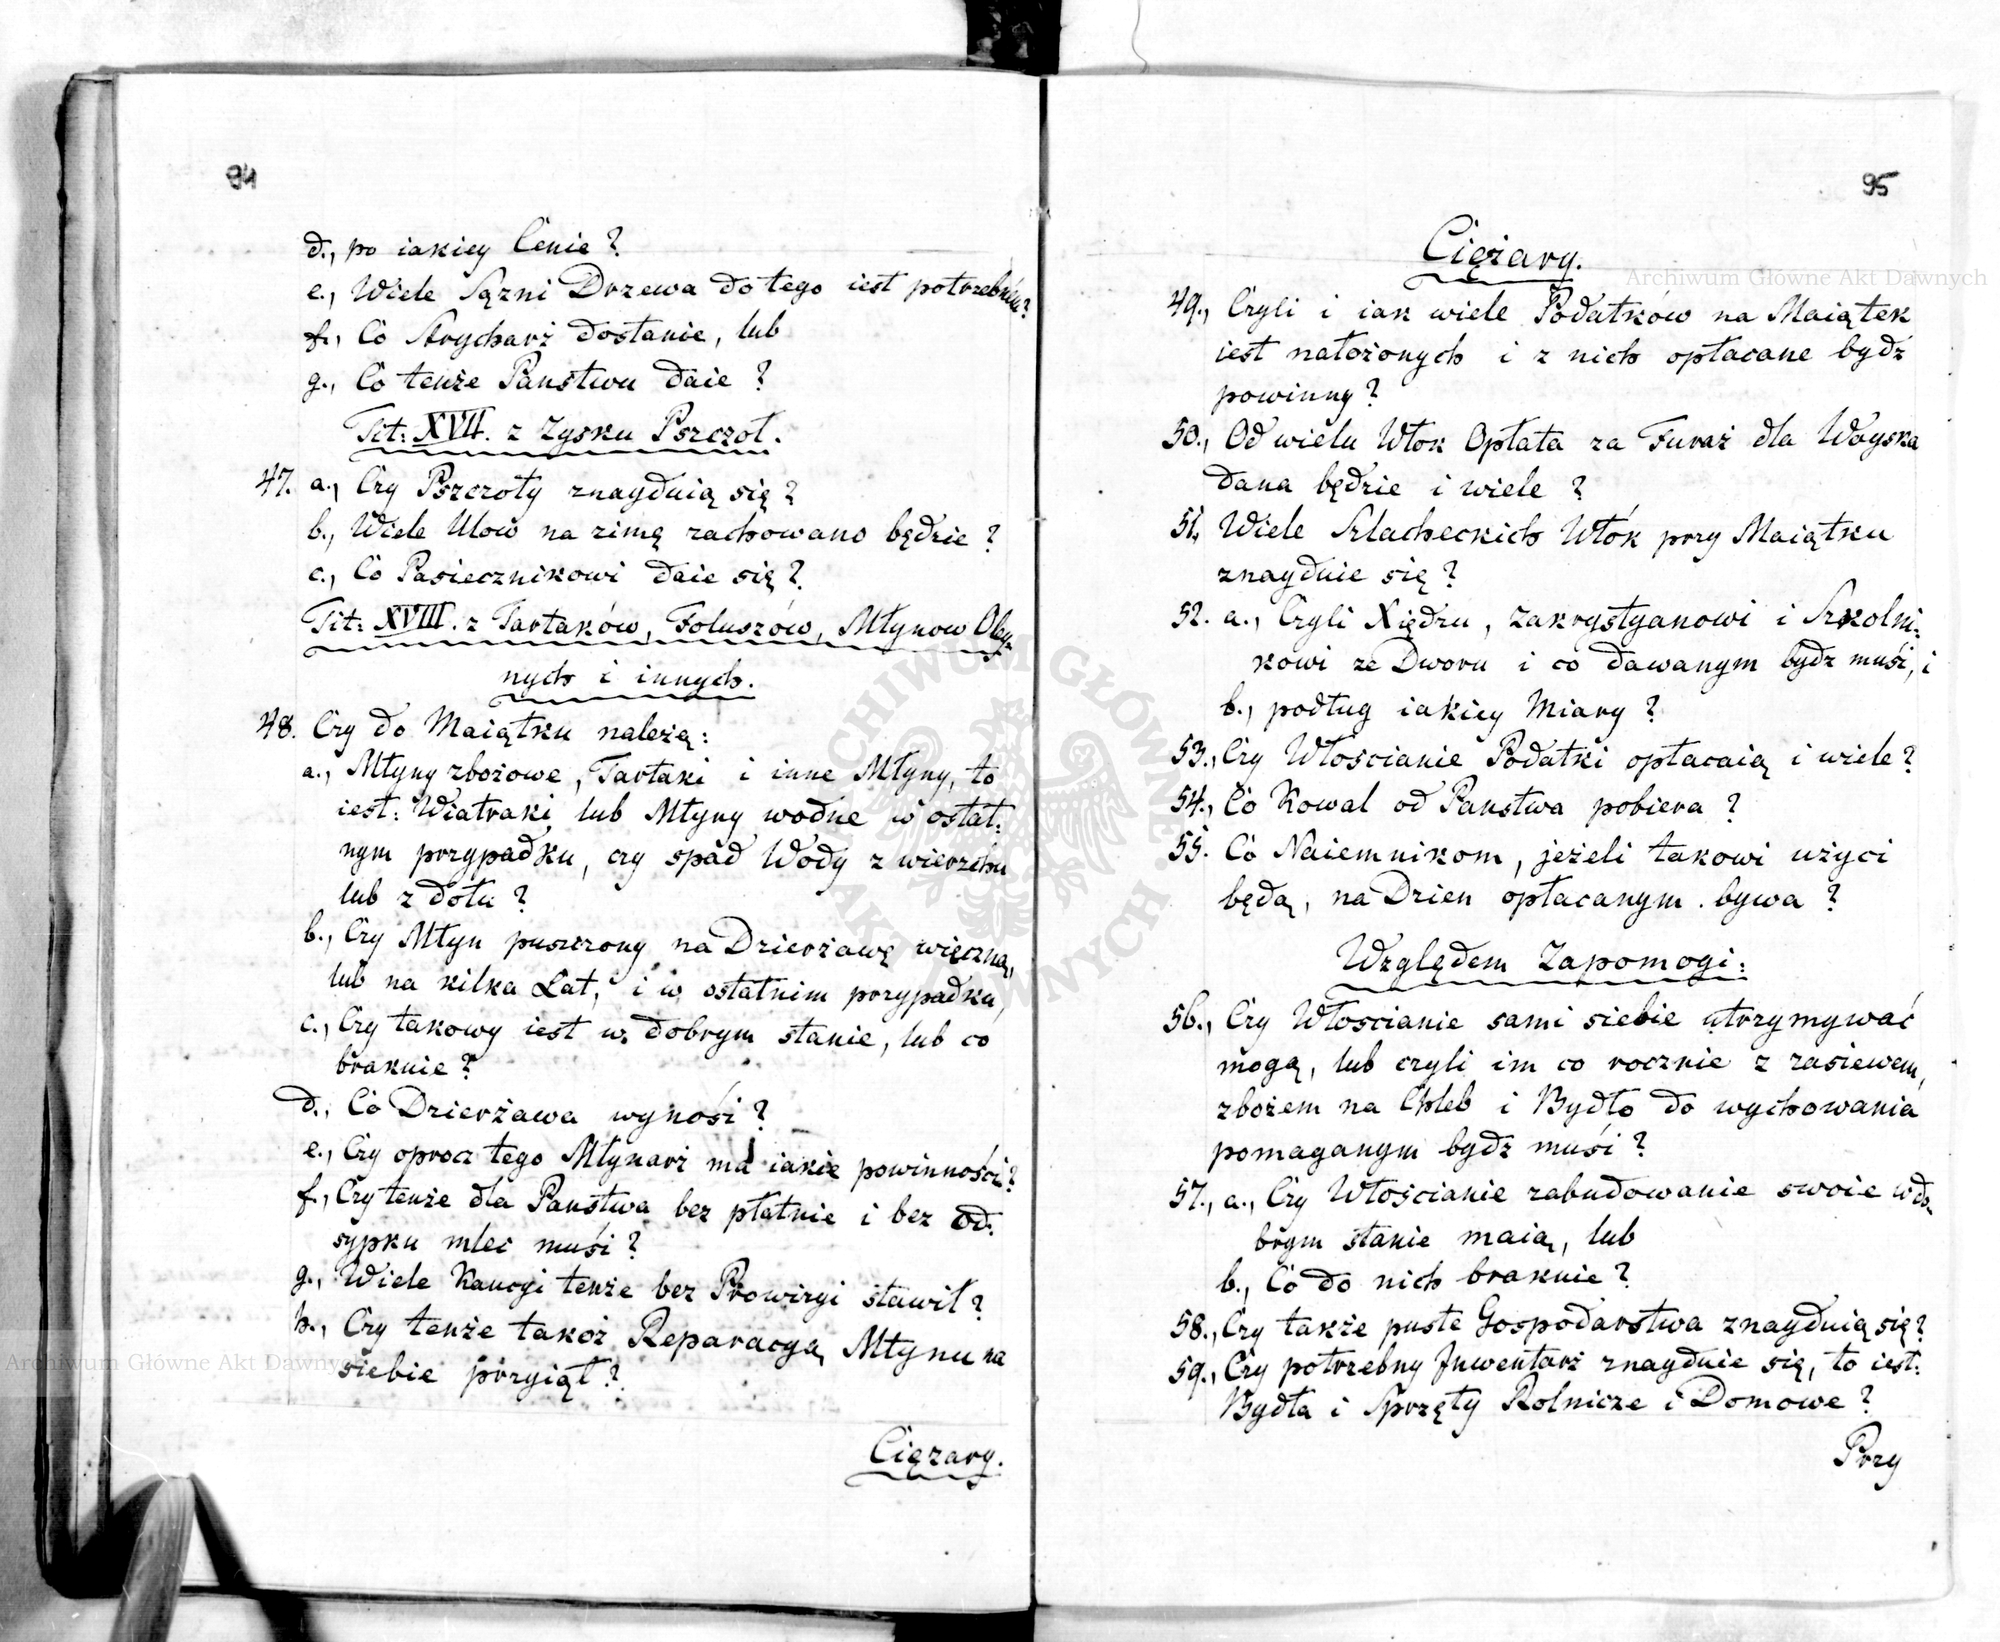 94
d., po iakiey Cenie?
e., Wiele Sązni Drzewa do tego iest potrzebnu?
f., Co Strycharz dostanie, lub
g., Co tenże Panstwu daie?
Tit: XVII. z Zysku Pszczoł.
47. a., Czy Pszczoły znayduią się?
b., Wiele Ulow na zimę zachowano będzie?
c., Co Pasiecznikowi daie się?
Tit: XVIII. z Tartaków, Foluszów, Młynow Oley-
nych i innych.
48. Czy do Maiątku należą:
a., Młyny zbożowe, Tartaki i inne Młyny, to
iest: Wiatraki lub Młyny wodne w ostat:
nym przypadku, czy spad Wody z wierzchu
lub z dołu?
b., Czy Młyn puszczony na Dzierżawę wieczną,
lub na kilka Lat, i w ostatnim przypadku,
c., Czy takowy iest w dobrym stanie, lub co
braknie?
d., Co Dzierżawa wynośi?
e., Czy oprocz tego Młynarz ma iakie powinności?
f., Czy tenże dla Panstwa bez płatnie i bez od:
sypku mlec muśi?
g., Wiele Kaucyi tenże bez Prowizyi stawił?
h., Czy tenże takoż Reparacyą Młynu na
siebie przyiął?
Ciężary.
95
Ciężary.
49., Czyli i iak wiele Podatków na Maiątek
iest nałożonych i z nich opłacane bydz
powinny?
50., Od wielu Włok Opłata za Furaż dla Woyska
dana będzie i wiele?
51., Wiele Szlacheckich Włók przy Maiątku
znayduie się?
52. a., Czyli Xiędzu, Zakrystyanowi i Szkolni:
kowi ze Dworu i co dawanym bydz muśi, i
b., podług iakiey Miary?
53., Czy Włoscianie Podatki opłacaią i wiele?
54., Co Kowal od Panstwa pobiera?
55. Co Naiemnikom, jeżeli takowi użyci
będą, na Dzien opłacanym bywa?
Względem Zapomogi:
56., Czy Włoscianie sami siebie utrzymywać
mogą, lub czyli im co rocznie z zasiewem,
zbożem na Chleb i Bydło do wychowania
pomaganym bydz muśi?
57., a., Czy Włościanie zabudowanie swoie w do-
brym stanie maią, lub
b., Co do nich braknie?
58., Czy także puste Gospodarstwa znayduią się?
59., Czy potrzebny Inwentarz znayduie się, to iest:
Bydła i Sprzęty Rolnicze i Domowe?
Przy
Archiwum Główne Akt Dawnych
Archiwum Główne Akt Dawnych
ARCHIWUM GŁÓWNE AKT DAWNYCH